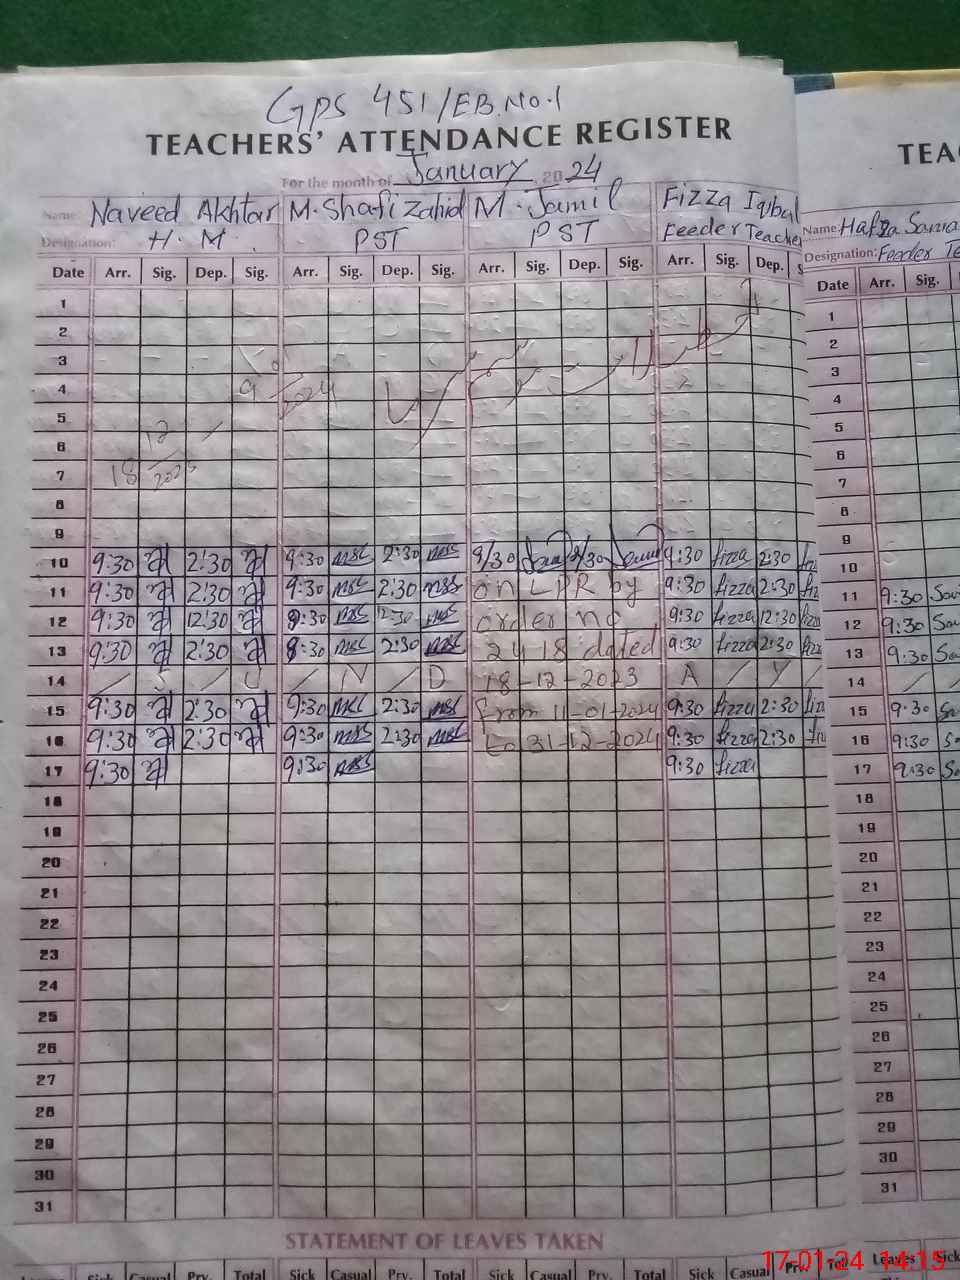 GPS 451/EB.No.1
TEACHERS' ATTENDANCE REGISTER
For the month of January 2024
Name: Naveed Akhtar M.Shafi Zahid M.Jamil Fizza Iqbal
Designation: H.M. PST PST Feeder Teacher
Date Arr. Sig. Dep. Sig. Arr. Sig. Dep. Sig. Arr. Sig. Dep. Sig. Arr. Sig. Dep. S
1
2
3
4
5
6
7
8
9
10 9:30 2:30 9:30 2:30 9:30 2:30 9:30 fizza 2:30
11 9:30 2:30 9:30 2:30 on LPR by 9:30 fizza 2:30
12 9:30 12:30 9:30 12:30 order no 9:30 fizza 12:30
13 9:30 2:30 8:30 2:30 2418 dated 9:30 fizza 2:30
14 / S / U / N / D 18-12-2023 A / Y /
15 9:30 2:30 9:30 2:30 From 11-01-2024 9:30 fizza 2:30
16 9:30 2:30 9:30 2:30 to 31-12-2024 9:30 fizza 2:30
17 9:30 9:30 9:30 fizza
18
19
20
21
22
23
24
25
26
27
28
29
30
31
STATEMENT OF LEAVES TAKEN
Sick Casual Prv. Total Sick Casual Prv. Total Sick Casual Prv. Total Sick Casual Prv.
TEA
Name: Hafza
Designation: Feeder Te
Date Arr. Sig.
1
2
3
4
5
6
7
8
9
10
11 9:30
12 9:30
13 9:30
14 / /
15 9:30
16 9:30
17 9:30
18
19
20
21
22
23
24
25
26
27
28
29
30
31
Leaves Sick
17-01-24 14:15